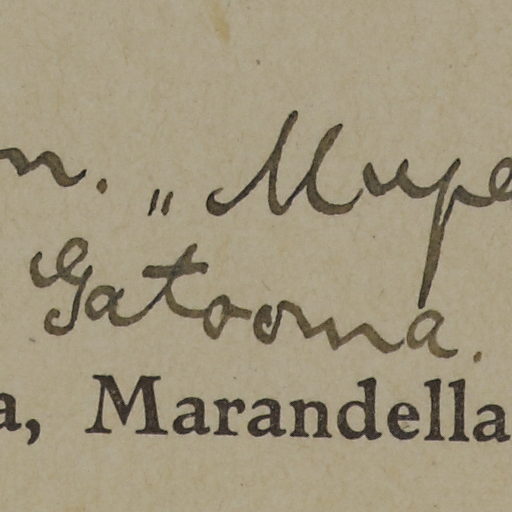 n. „ Mupe
Gatooma.
a, Marandella